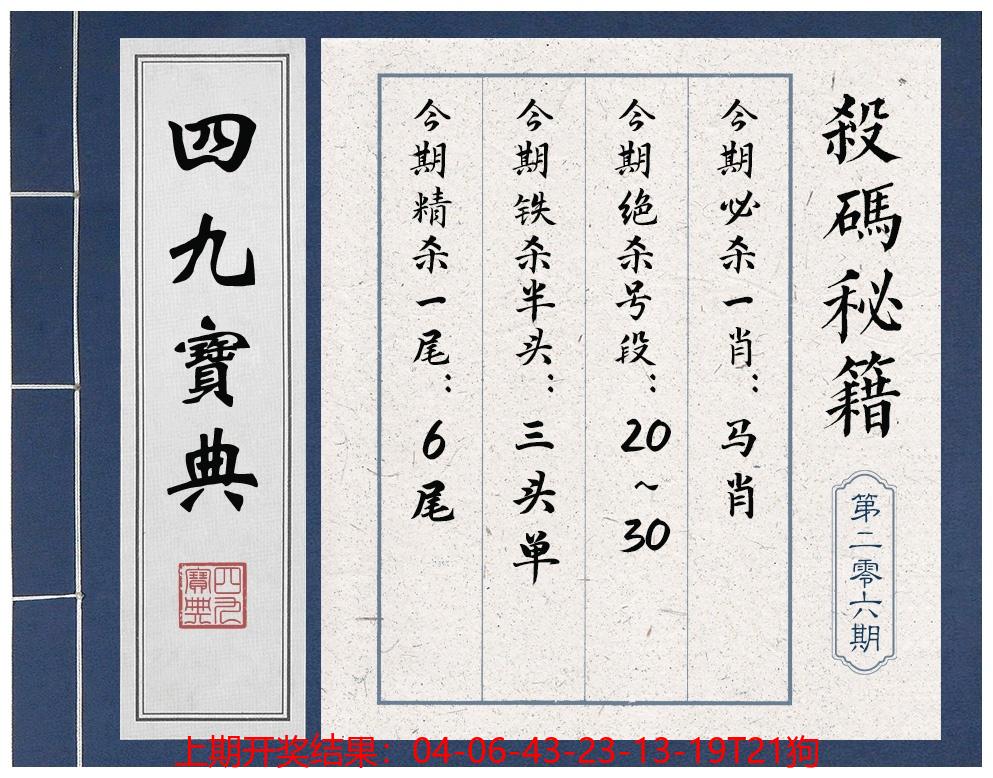 殺碼秘籍
第二零六期
今期必杀一肖：马肖
今期绝杀号段：20~30
今期铁杀半头：三头单
今期精杀一尾：6尾
四九寶典
四九寶典
上期开奖结果：04-06-43-23-13-19T21狗